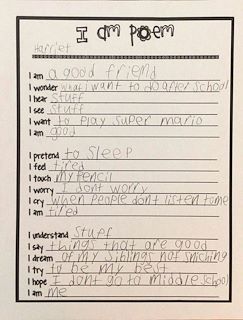 I am poem
Harriet
I am a good friend
I wonder what I want to do after school
I hear stuff
I see stuff
I want to play super mario
I am good
I pretend to sleep
I feel tired
I touch my pencil
I worry I dont worry
I cry when people dont listen to me
I am tired
I understand stuff
I say things that are good
I dream of my siblings not sniching
I try to be my best
I hope I dont go to middle school
I am me